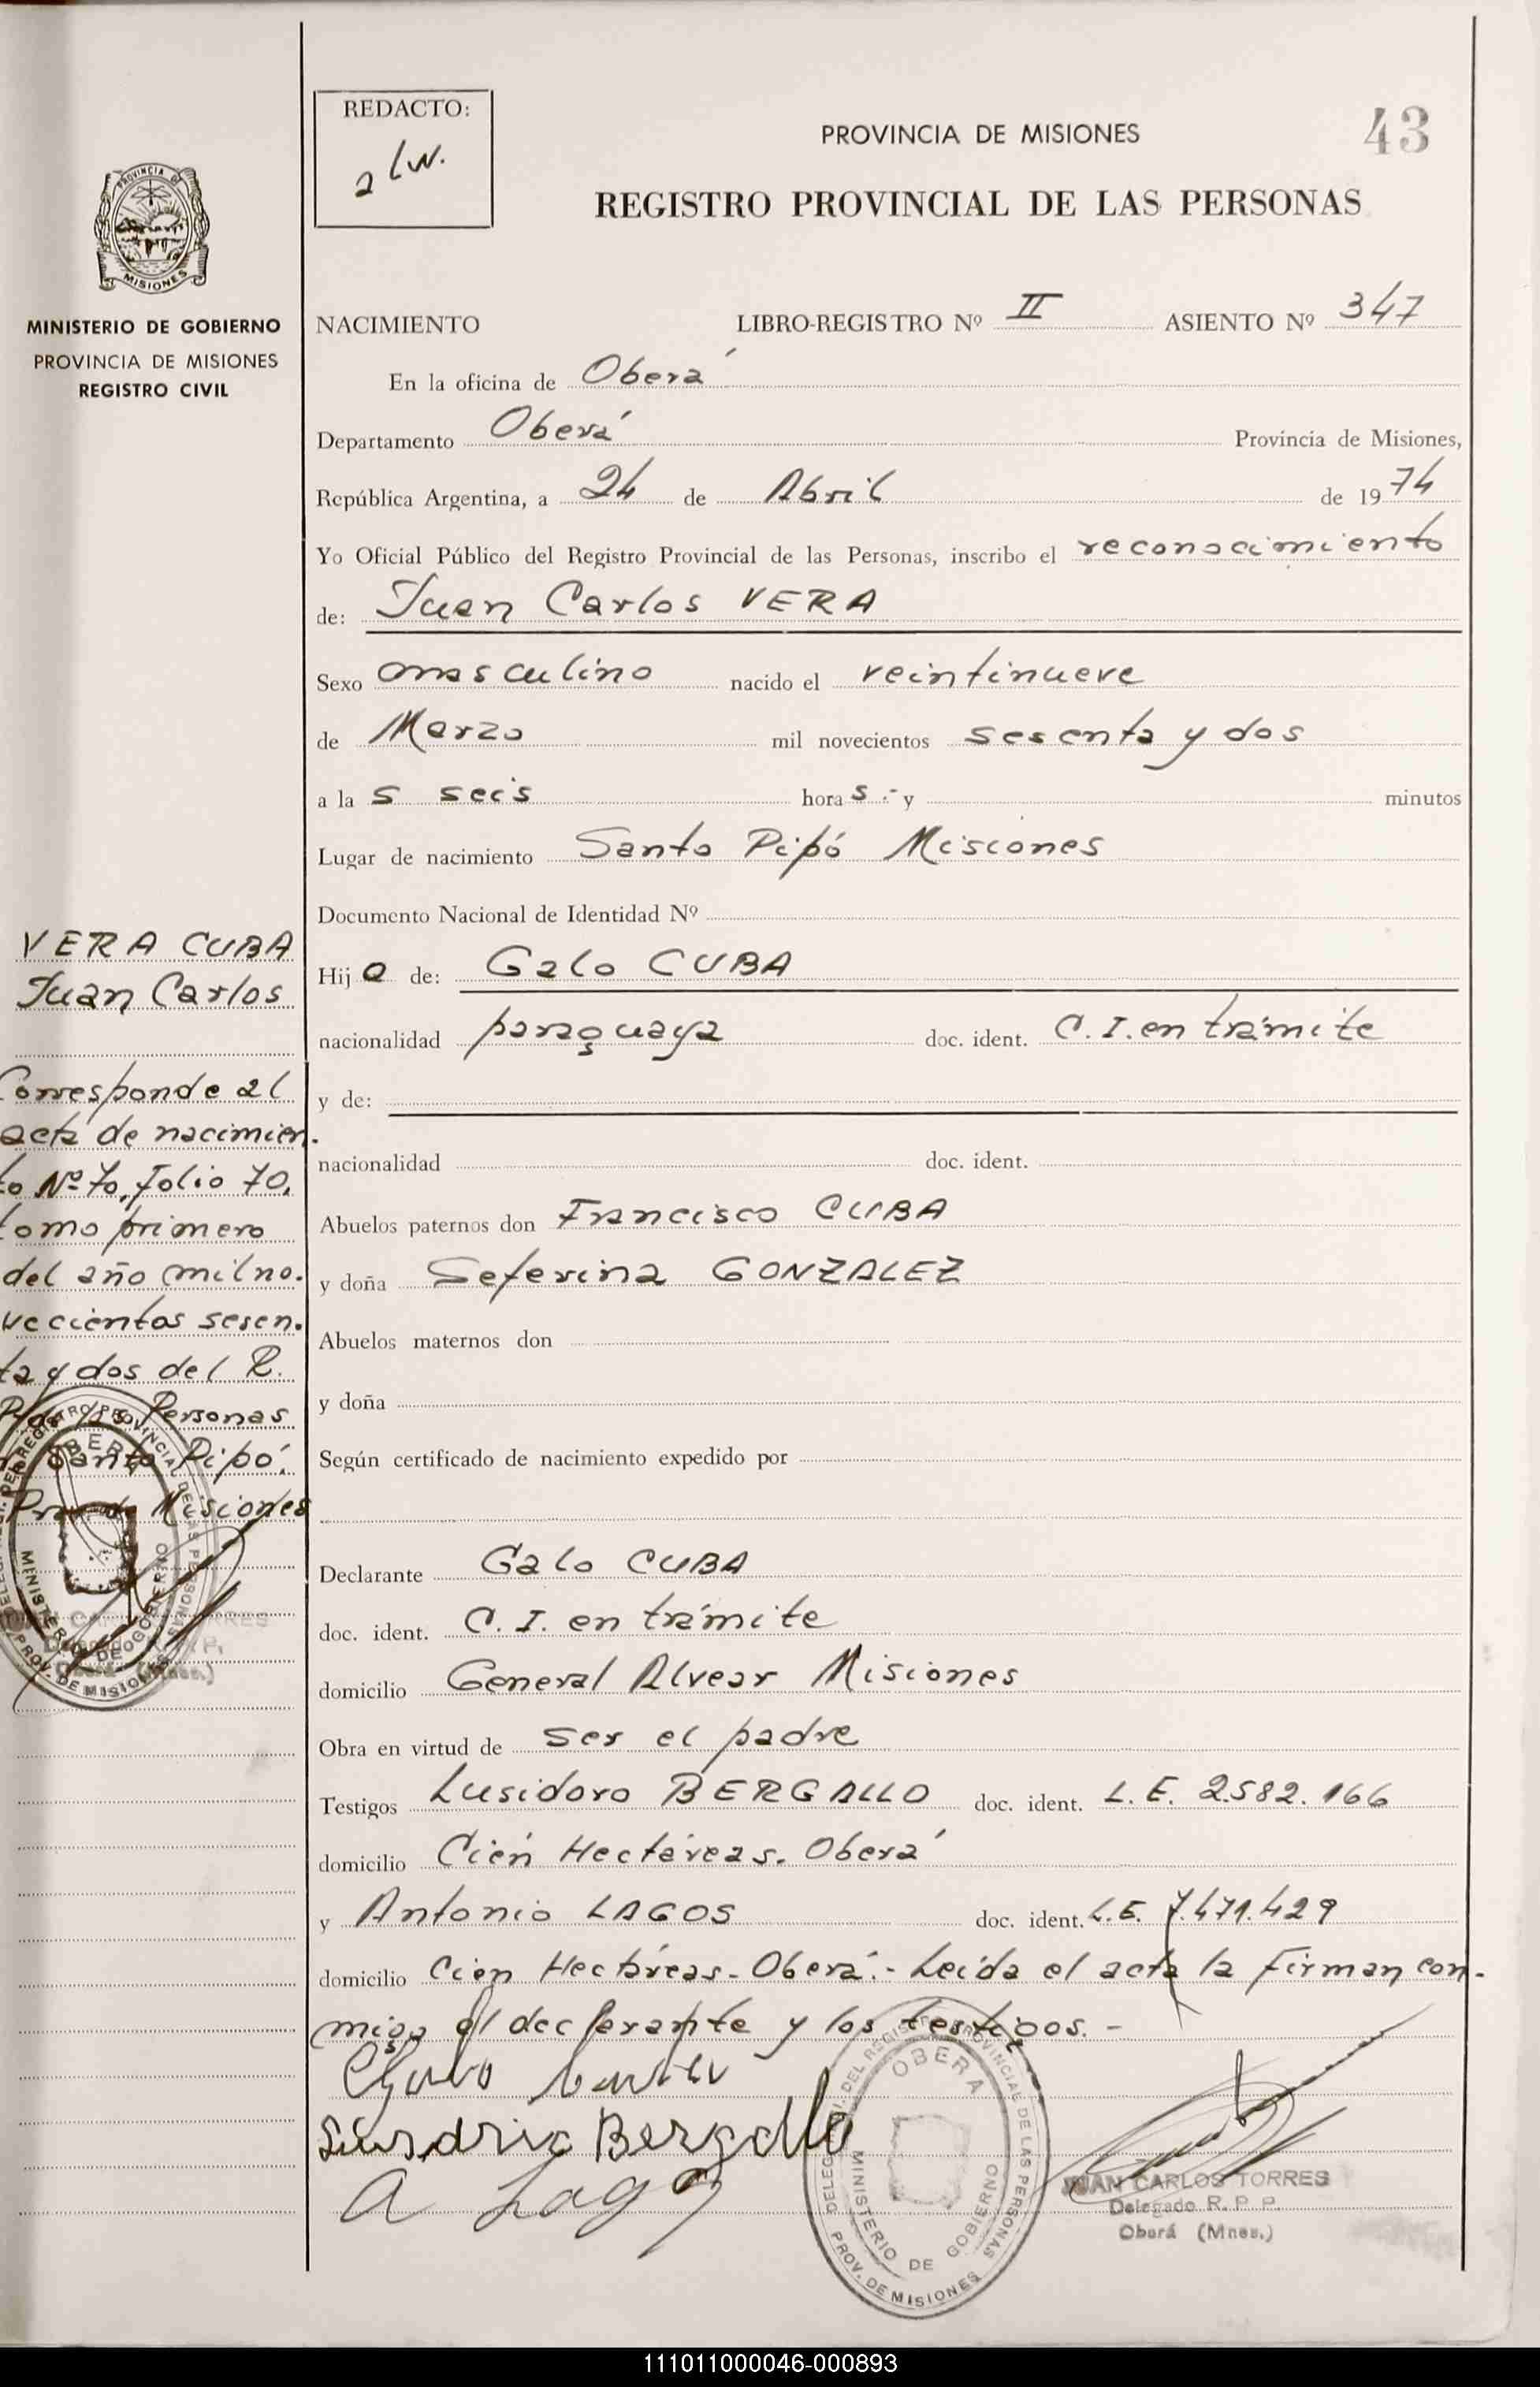 REDACTO:
PROVINCIA DE MISIONES
43
REGISTRO PROVINCIAL DE LAS PERSONAS
PROVINCIA DE
MISIONES
MINISTERIO DE GOBIERNO
PROVINCIA DE MISIONES
REGISTRO CIVIL
NACIMIENTO LIBRO-REGISTRO Nº II ASIENTO Nº 347
En la oficina de Oberá
Departamento Oberá Provincia de Misiones,
República Argentina, a 24 de Abril de 1974
Yo Oficial Público del Registro Provincial de las Personas, inscribo el reconocimiento
de: Juan Carlos VERA
Sexo masculino nacido el veintinueve
de Marzo mil novecientos sesenta y dos
a las seis horas.- y minutos
Lugar de nacimiento Santo Pipó Misiones
Documento Nacional de Identidad Nº
Hijo de: Galo CUBA
nacionalidad paraguaya doc. ident. C.I. en trámite
y de:
nacionalidad doc. ident.
Abuelos paternos don Francisco CUBA
y doña Seferina GONZALEZ
Abuelos maternos don
y doña
Según certificado de nacimiento expedido por
Declarante Galo CUBA
doc. ident. C. I. en trámite
domicilio General Alvear Misiones
Obra en virtud de ser el padre
Testigos Lusidoro BERGALLO doc. ident. L.E. 2.582.166
domicilio Cien Hectáreas. Oberá
y Antonio LAGOS doc. ident. L.E. 7.471.429
domicilio Cien Hectáreas - Oberá.- Leída el acta la firman con-
migo el declarante y los testigos.-
Bergallo
A Lagos
DELEG. DEL REGISTRO PROVINCIAL DE LAS PERSONAS
OBERA
MINISTERIO DE GOBIERNO
PROV. DE MISIONES
JUAN CARLOS TORRES
Delegado R. P. P.
Oberá (Mnes.)
VERA CUBA
Juan Carlos
Corresponde al
acta de nacimien-
to Nº 70, folio 70,
tomo primero
del año mil no-
vecientos sesen-
ta y dos del R.
Personas
Santo Pipó.
Misiones
MINISTERIO DE GOBIERNO
PROV. DE MISIONES
111011000046-000893